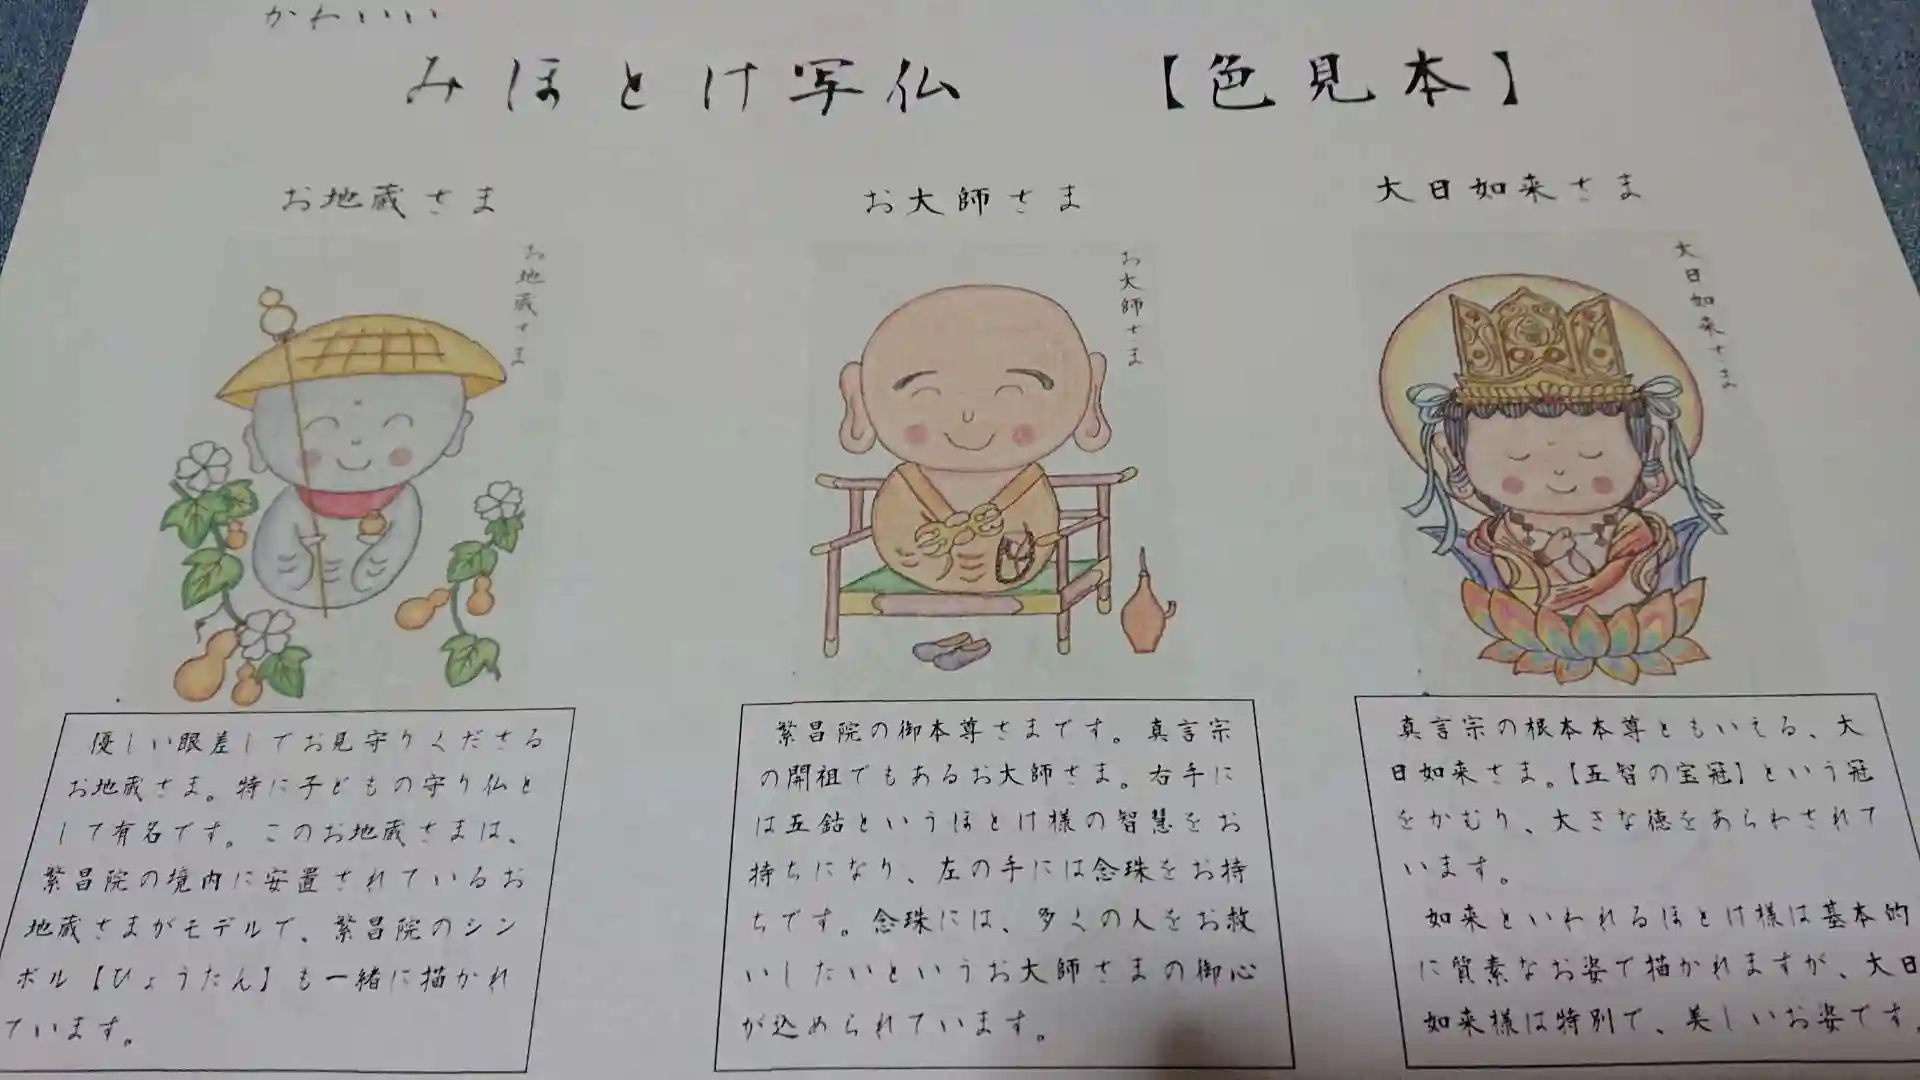 かわいい
みほとけ写仏 【色見本】
お地蔵さま
お地蔵さま
優しい眼差しでお見守りくださる
お地蔵さま。特に子どもの守り仏と
して有名です。このお地蔵さまは、
繁昌院の境内に安置されているお
地蔵さまがモデルで、繁昌院のシン
ボル【ひょうたん】も一緒に描かれ
ています。
お大師さま
お大師さま
繁昌院の御本尊さまです。真言宗
の開祖でもあるお大師さま。右手に
は五鈷というほとけ様の智慧をお
持ちになり、左の手には念珠をお持
ちです。念珠には、多くの人をお救
いしたいというお大師さまの御心
が込められています。
大日如来さま
大日如来さま
真言宗の根本本尊ともいえる、大
日如来さま。【五智の宝冠】という冠
をかむり、大きな徳をあらわされて
います。
如来といわれるほとけ様は基本的
に質素なお姿で描かれますが、大日
如来様は特別で、美しいお姿です。